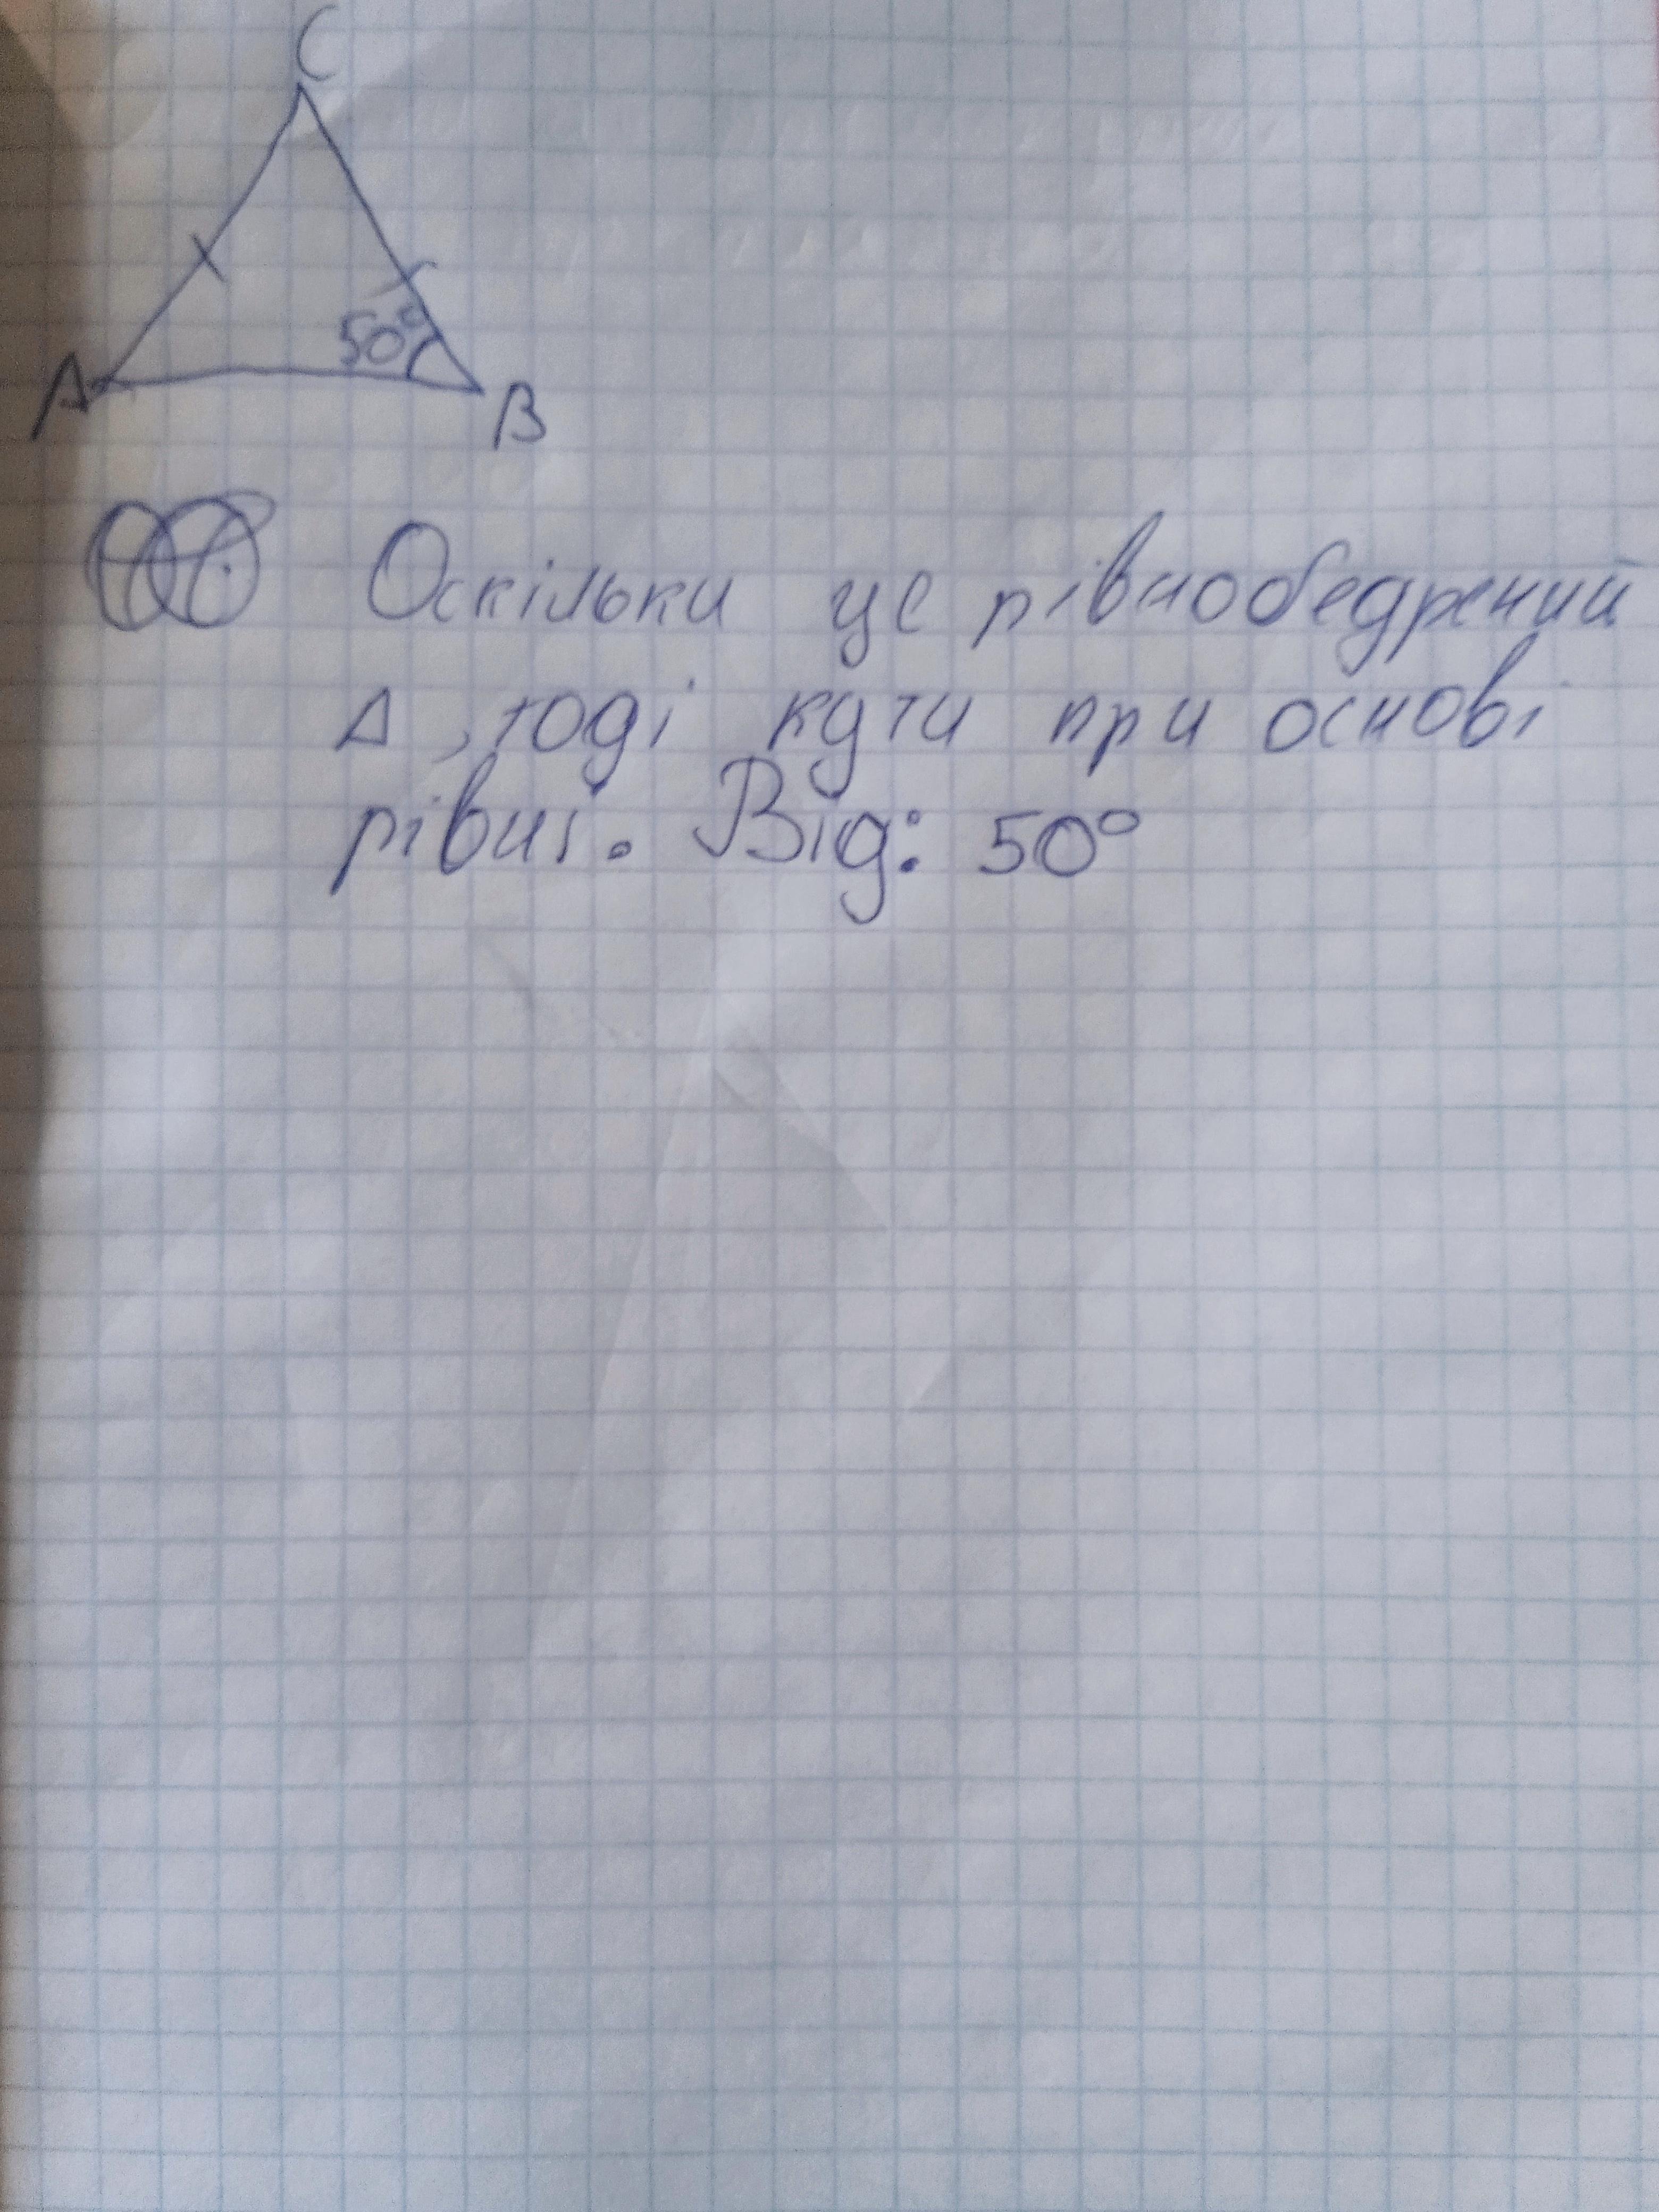 C
50°
A
B
Оскільки це рівнобедрений
Δ, тоді кути при основі
рівні. Від: 50°